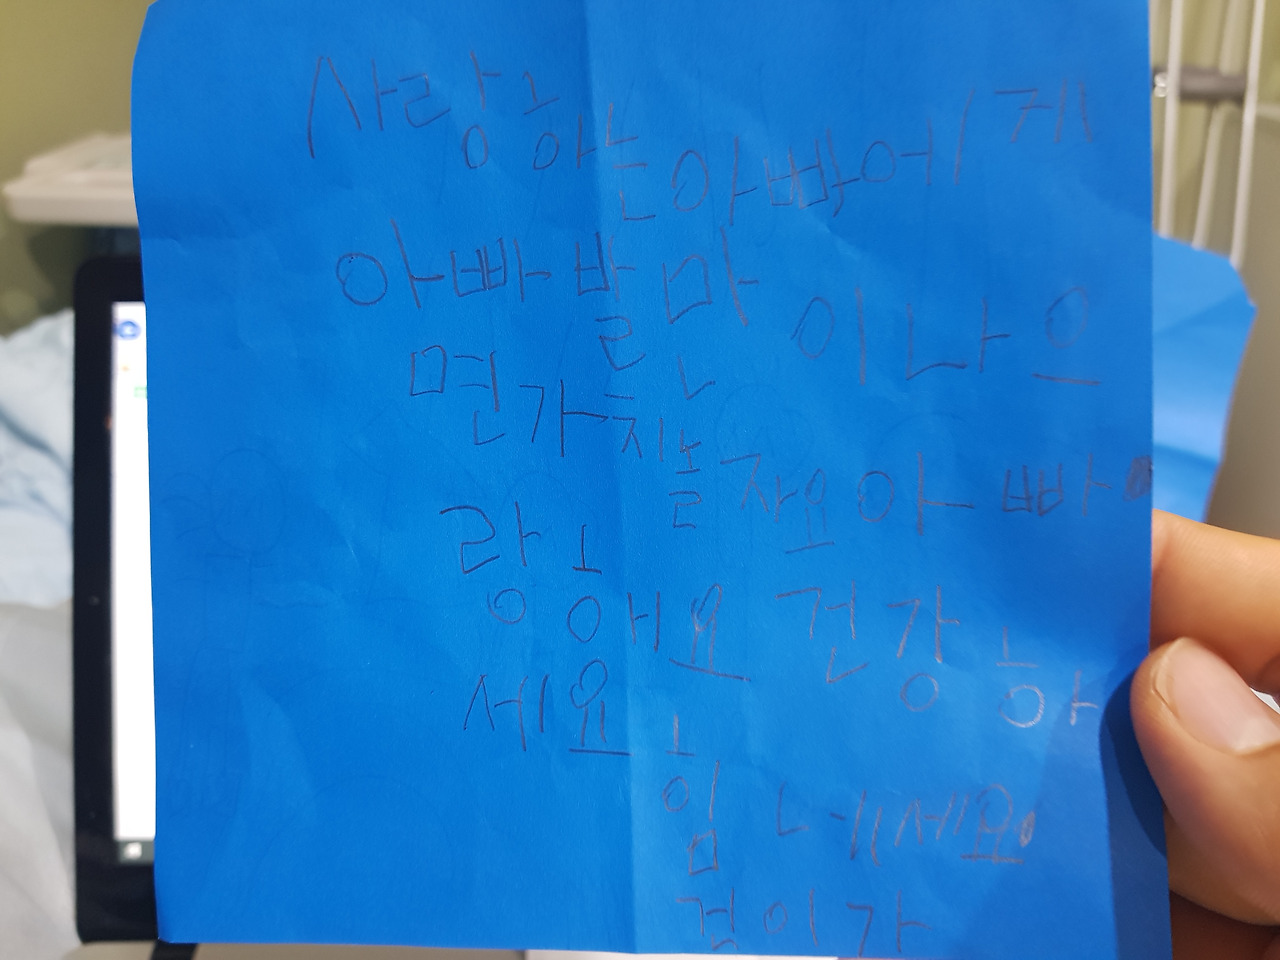 사랑하는 아빠에게
아빠 발만 이 나으
면 가치 놀자요 아빠
랑해요 건강하
세요
힘 내세요.
겸이가